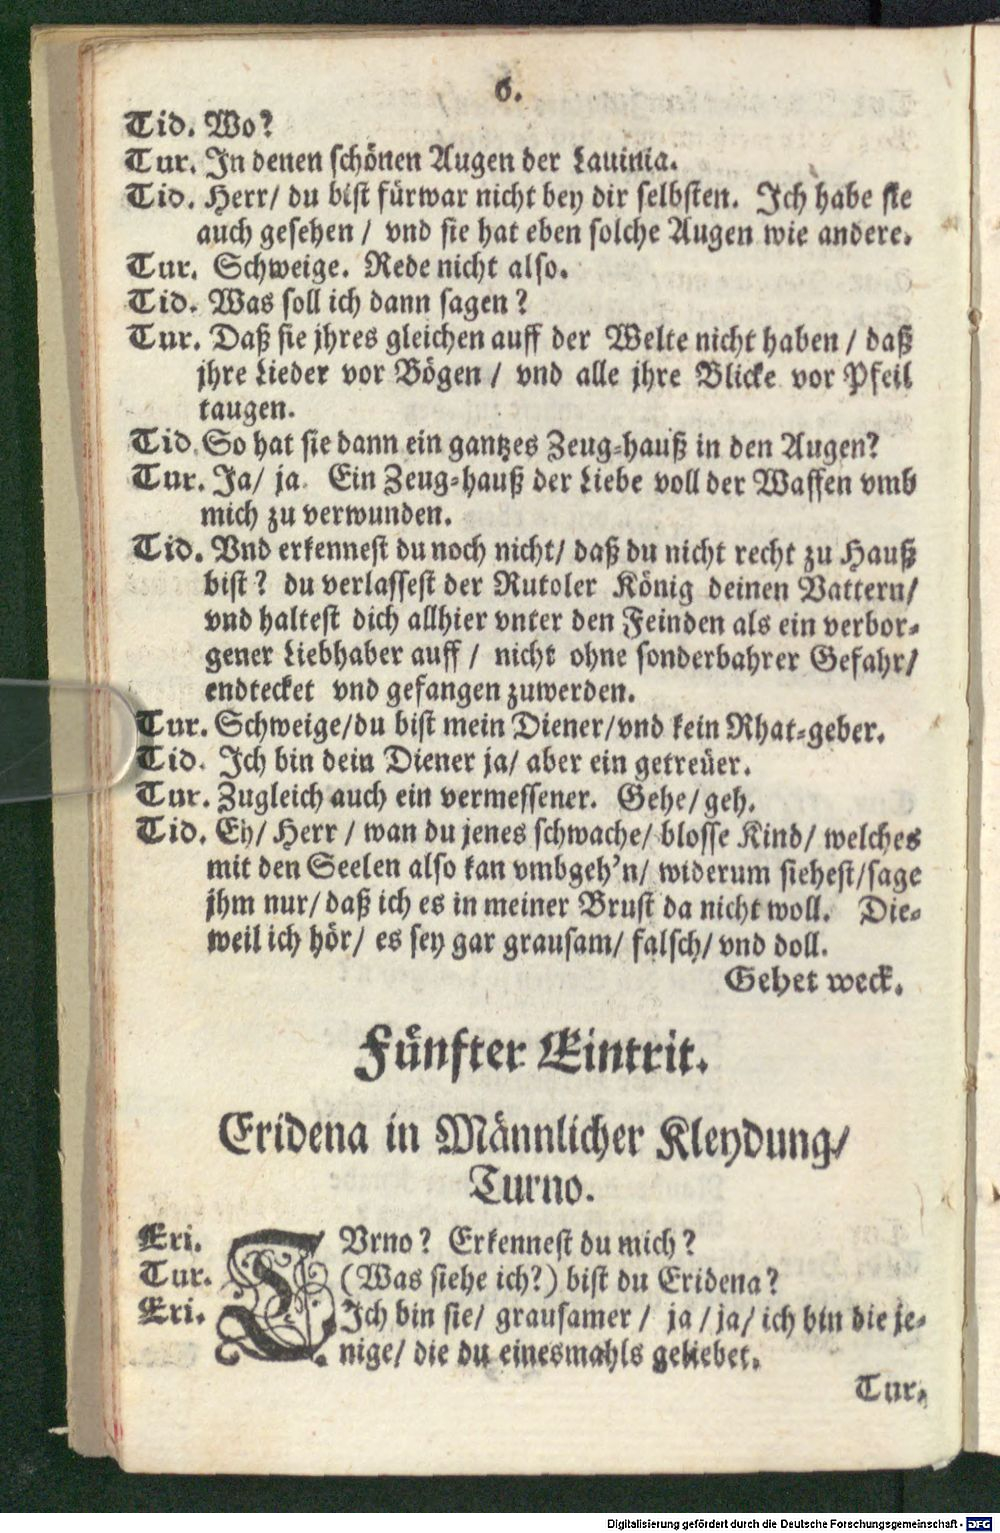 6.
Tid. Wo?
Tur. In denen schönen Augen der Lauinia.
Tid. Herr/ du bist fürwar nicht bey dir selbsten. Ich habe sie
auch gesehen / vnd sie hat eben solche Augen wie andere.
Tur. Schweige. Rede nicht also.
Tid. Was soll ich dann sagen?
Tur. Daß sie jhres gleichen auff der Welte nicht haben / daß
jhre Lieder vor Bögen / vnd alle jhre Blicke vor Pfeil
taugen.
Tid. So hat sie dann ein gantzes Zeug-hauß in den Augen?
Tur. Ja/ ja. Ein Zeug-hauß der Liebe voll der Waffen vmb
mich zu verwunden.
Tid. Vnd erkennest du noch nicht/ daß du nicht recht zu Hauß
bist? du verlassest der Rutoler König deinen Vattern/
vnd haltest dich allhier vnter den Feinden als ein verbor-
gener Liebhaber auff / nicht ohne sonderbahrer Gefahr/
endtecket vnd gefangen zuwerden.
Tur. Schweige/du bist mein Diener/vnd kein Rhat-geber.
Tid. Ich bin dein Diener ja/ aber ein getreüer.
Tur. Zugleich auch ein vermessener. Gehe/ geh.
Tid. Ey/ Herr / wan du jenes schwache/ blosse Kind/ welches
mit den Seelen also kan vmbgeh'n/ widerum siehest/sage
jhm nur/ daß ich es in meiner Brust da nicht woll. Die-
weil ich hör/ es sey gar grausam/ falsch/ vnd doll.
Gehet weck.
Fünfter Eintrit.
Eridena in Männlicher Kleydung/
Turno.
Eri. TVrno? Erkennest du mich?
Tur. (Was siehe ich?) bist du Eridena?
Eri. Ich bin sie/ grausamer / ja / ja/ ich bin die je-
nige/ die du einesmahls geliebet.
Tur.
Digitalisierung gefördert durch die Deutsche Forschungsgemeinschaft - DFG